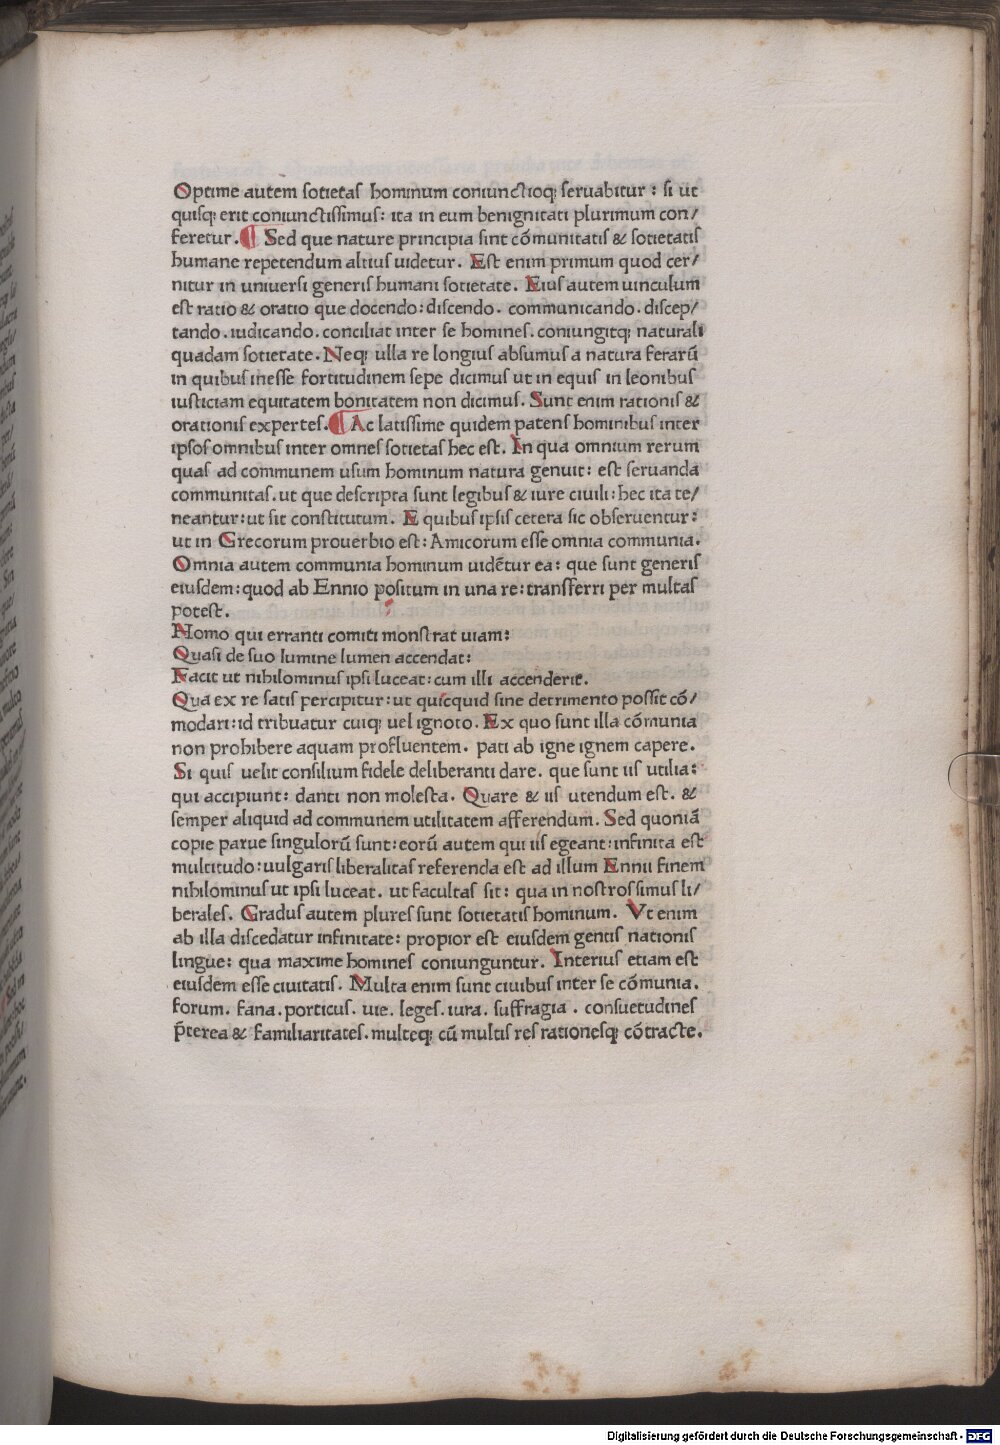 Optime autem sotietas hominum coniunctioq; seruabitur : si ut
quisq; erit coniunctissimus: ita in eum benignitati plurimum con/
feretur. ¶ Sed que nature principia sint cõmunitatis & sotietatis
humane repetendum altius uidetur. Est enim primum quod cer/
nitur in uniuersi generis humani sotietate. Eius autem uinculum
est ratio & oratio que docendo: discendo. communicando. discep/
tando. iudicando. conciliat inter se homines. coniungitq; naturali
quadam sotietate. Neq; ulla re longius absumus a natura ferarũ
in quibus inesse fortitudinem sepe dicimus ut in equis in leonibus
iusticiam equitatem bonitatem non dicimus. Sunt enim rationis &
orationis expertes. ¶ Ac latissime quidem patens hominibus inter
ipsos omnibus inter omnes sotietas hec est. In qua omnium rerum
quas ad communem usum hominum natura genuit: est seruanda
communitas. ut que descripta sunt legibus & iure ciuili: hec ita te/
neantur: ut sit constitutum. E quibus ipsis cetera sic obseruentur:
ut in Grecorum prouerbio est: Amicorum esse omnia communia.
Omnia autem communia hominum uidẽtur ea: que sunt generis
eiusdem: quod ab Ennio positum in una re: transferri per multas
potest.
Nomo qui erranti comiti monstrat uiam:
Quasi de suo lumine lumen accendat:
Facit ut nihilominus ipsi luceat: cum illi accenderit.
Qua ex re satis percipitur: ut quicquid sine detrimento possit cõ/
modari: id tribuatur cuiq; uel ignoto. Ex quo sunt illa cõmunia
non prohibere aquam profluentem. pati ab igne ignem capere.
Si quis uelit consilium fidele deliberanti dare. que sunt iis utilia:
qui accipiunt: danti non molesta. Quare & iis utendum est. &
semper aliquid ad communem utilitatem afferendum. Sed quoniã
copie parue singulorũ sunt: eorũ autem qui iis egeant: infinita est
multitudo: uulgaris liberalitas referenda est ad illum Ennii finem
nihilominus ut ipsi luceat. ut facultas sit: qua in nostros simus li/
berales. Gradus autem plures sunt sotietatis hominum. Vt enim
ab illa discedatur infinitate: propior est eiusdem gentis nationis
lingue: qua maxime homines coniunguntur. Interius etiam est
eiusdem esse ciuitatis. Multa enim sunt ciuibus inter se cõmunia.
forum. fana. porticus. uie. leges. iura. suffragia . consuetudines
p̃terea & familiaritates. multeq; cũ multis res rationesq; cõtracte.
Digitalisierung gefördert durch die Deutsche Forschungsgemeinschaft - DFG